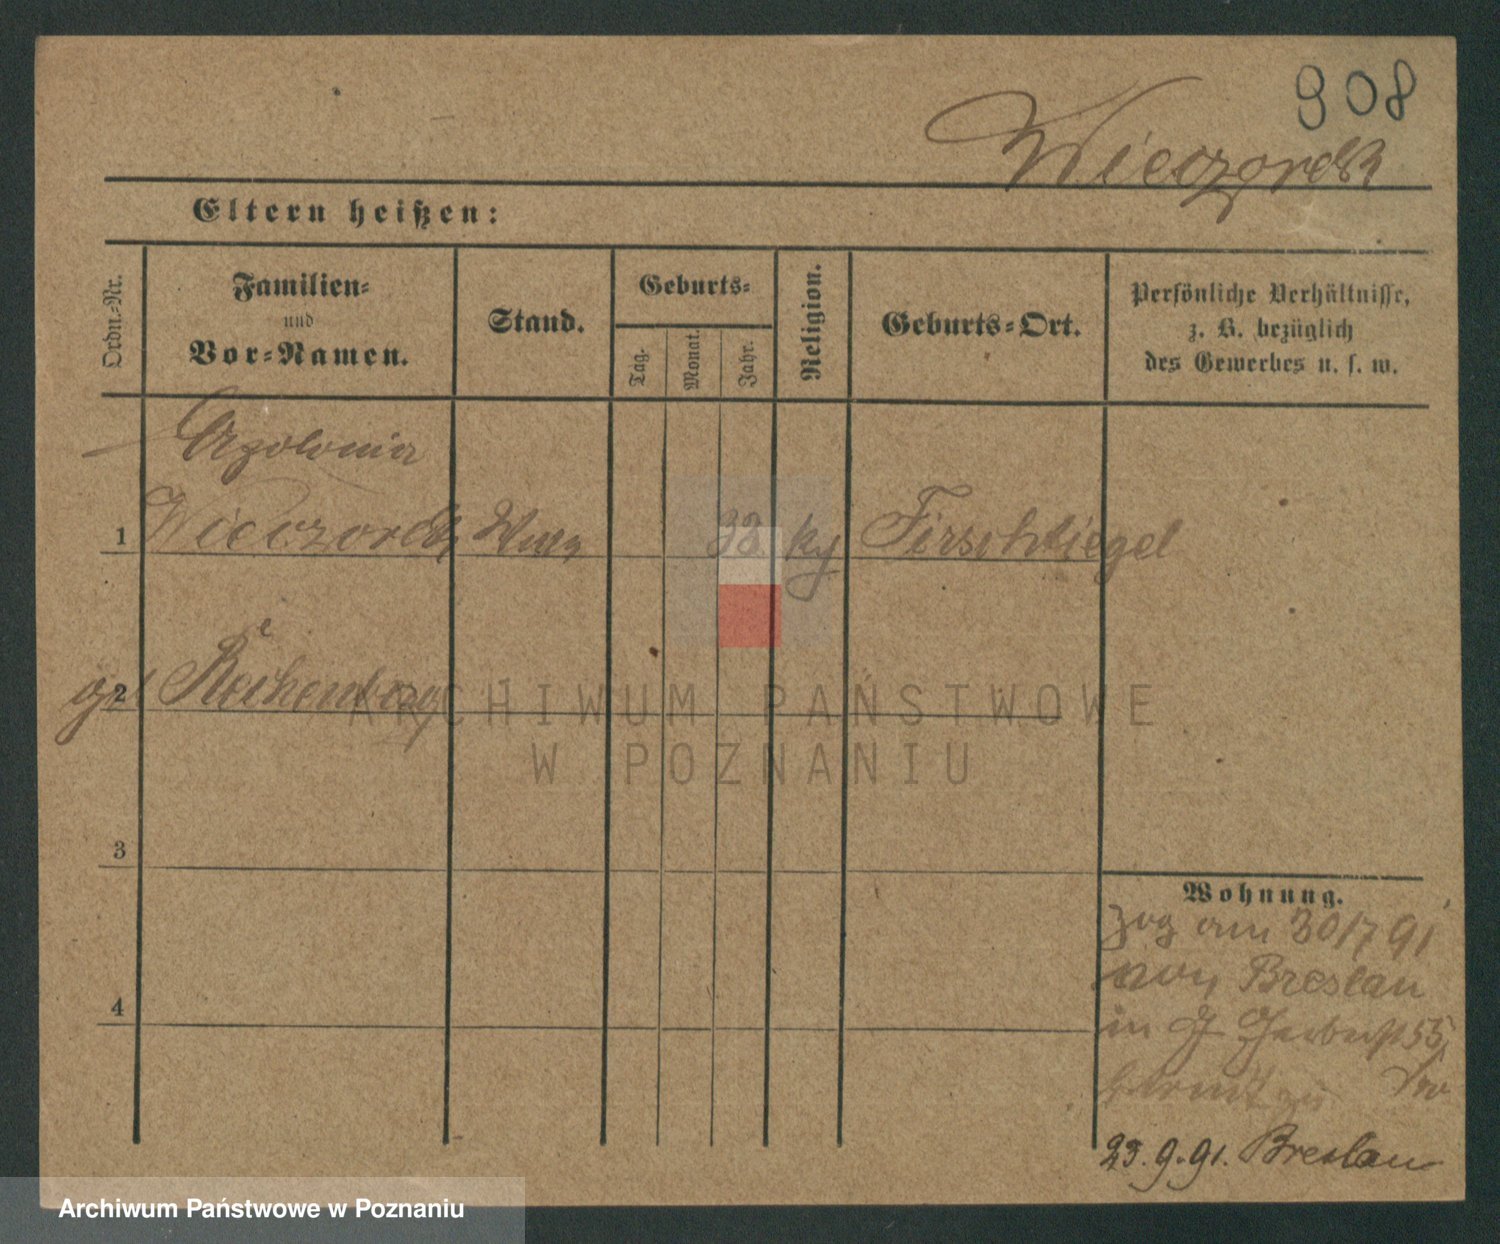 908
Wieczorek
Eltern heißen:
Ordn.-Nr.
Familien-
und
Vor-Namen.
Stand.
Geburts-
Tag.
Monat.
Jahr.
Religion.
Geburts-Ort.
Persönliche Verhältnisse,
z. B. bezüglich
des Gewerbes u. s. w.
Apolonia
1 Wieczorek 33 Tirschtiegel
2
3
4
Wohnung.
zog am 30/7 91
von Breslau
in 55
23.9.91. Breslau
ARCHIWUM PAŃSTWOWE
W POZNANIU
Archiwum Państwowe w Poznaniu